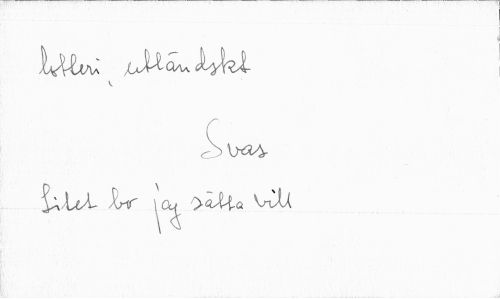 lotteri, utländskt
Svas
Litet bo jag sätta vill